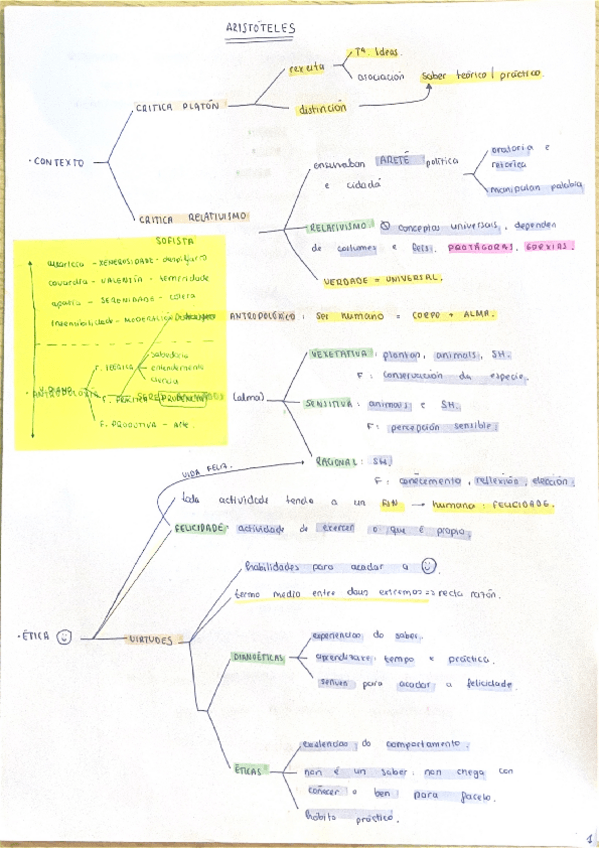 ARISTÓTELES
rexeita
Tª. Ideas.
asociación saber teórico / práctico.
CRITICA PLATÓN
distinción
· CONTEXTO
ensinaban ARETÉ política
e cidadá
oratoria e
retórica
manipulan palabra
CRITICA RELATIVISMO
RELATIVISMO: conceptos universais, dependen
de costumes e leis. PROTÁGORAS, GORXIAS.
VERDADE = UNIVERSAL.
SOFISTA
avaricia - XENEROSIDADE - despilfarro
covardía - VALENTÍA - temeridade
apatía - SERENIDADE - cólera
insensibilidade - MODERACIÓN
ANTROPOLÓXICO: Ser humano = CORPO + ALMA.
F. TEÓRICA
sabedoría
entendemento
ciencia
· ANTROPOLOXÍA
F. PRÁCTICA
PRUDENCIA
(alma)
F. PRODUTIVA - arte.
VEXETATIVA: plantas, animais, SH.
F: conservación da especie.
SENSITIVA: animais e SH.
F: percepción sensible.
RACIONAL: SH.
F: coñecemento, reflexión, elección.
VIDA FELIZ.
toda actividade tende a un FIN → humana: FELICIDADE.
FELICIDADE: actividade de exercer o que é propio.
habilidades para acadar a ☺.
termo medio entre dous extremos => recta razón.
· ÉTICA ☺
VIRTUDES
DIANOÉTICAS
experiencias do saber.
aprendizaxe: tempo e práctica.
serven para acadar a felicidade.
ÉTICAS
excelencias do comportamento.
non é un saber, non chega con
coñecer o ben para facelo.
hábito práctico.
1